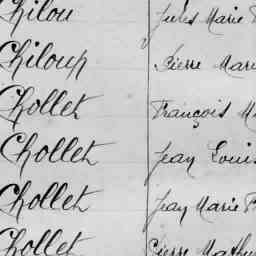 Chilou Jules Marie
Chiloup Pierre Mari
Chollet François M
Chollet Jean Louis
Chollet Jean Marie P
Chollet Pierre Mathu